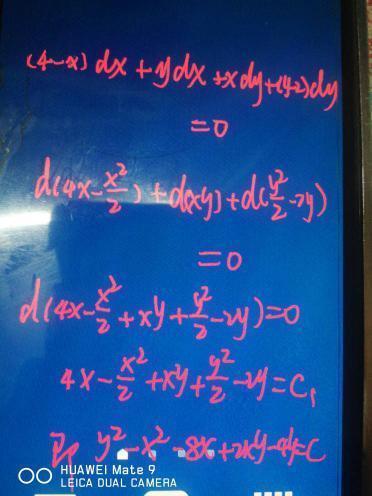 (4-x)dx+ydx+xdy+(y-2)dy
=0
d(4x-x²/2)+d(xy)+d(y²/2-2y)
=0
d(4x-x²/2+xy+y²/2-2y)=0
4x-x²/2+xy+y²/2-2y=C₁
即 y²-x²-8x+2xy-4y=C
HUAWEI Mate 9
LEICA DUAL CAMERA